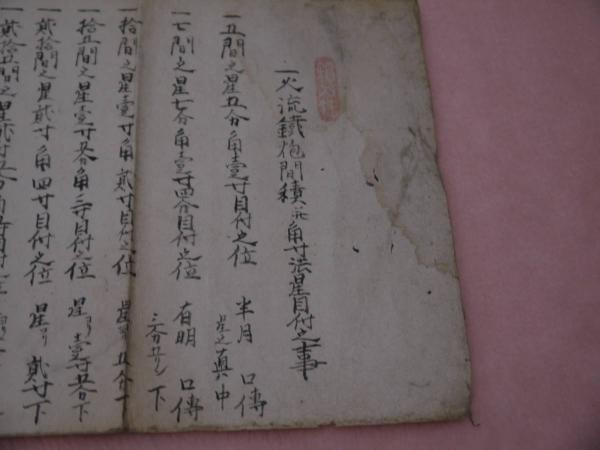 一火流鐵炮間積并角寸法星目付之事
一五間之星五分角壹寸目付之位 半月 口傳
星之真中
一七間之星七分角壹寸四分目付之位 有明 口傳
三分五リン下
一拾間之星壹寸角貳寸目付之位 星ヨリ五分下
一拾五間之星壹寸五分角三寸目付之位 星ヨリ壹寸五分下
一貳拾間之星貳寸角四寸目付之位 星ヨリ貳寸下
一貳拾五間之星貳寸五分角